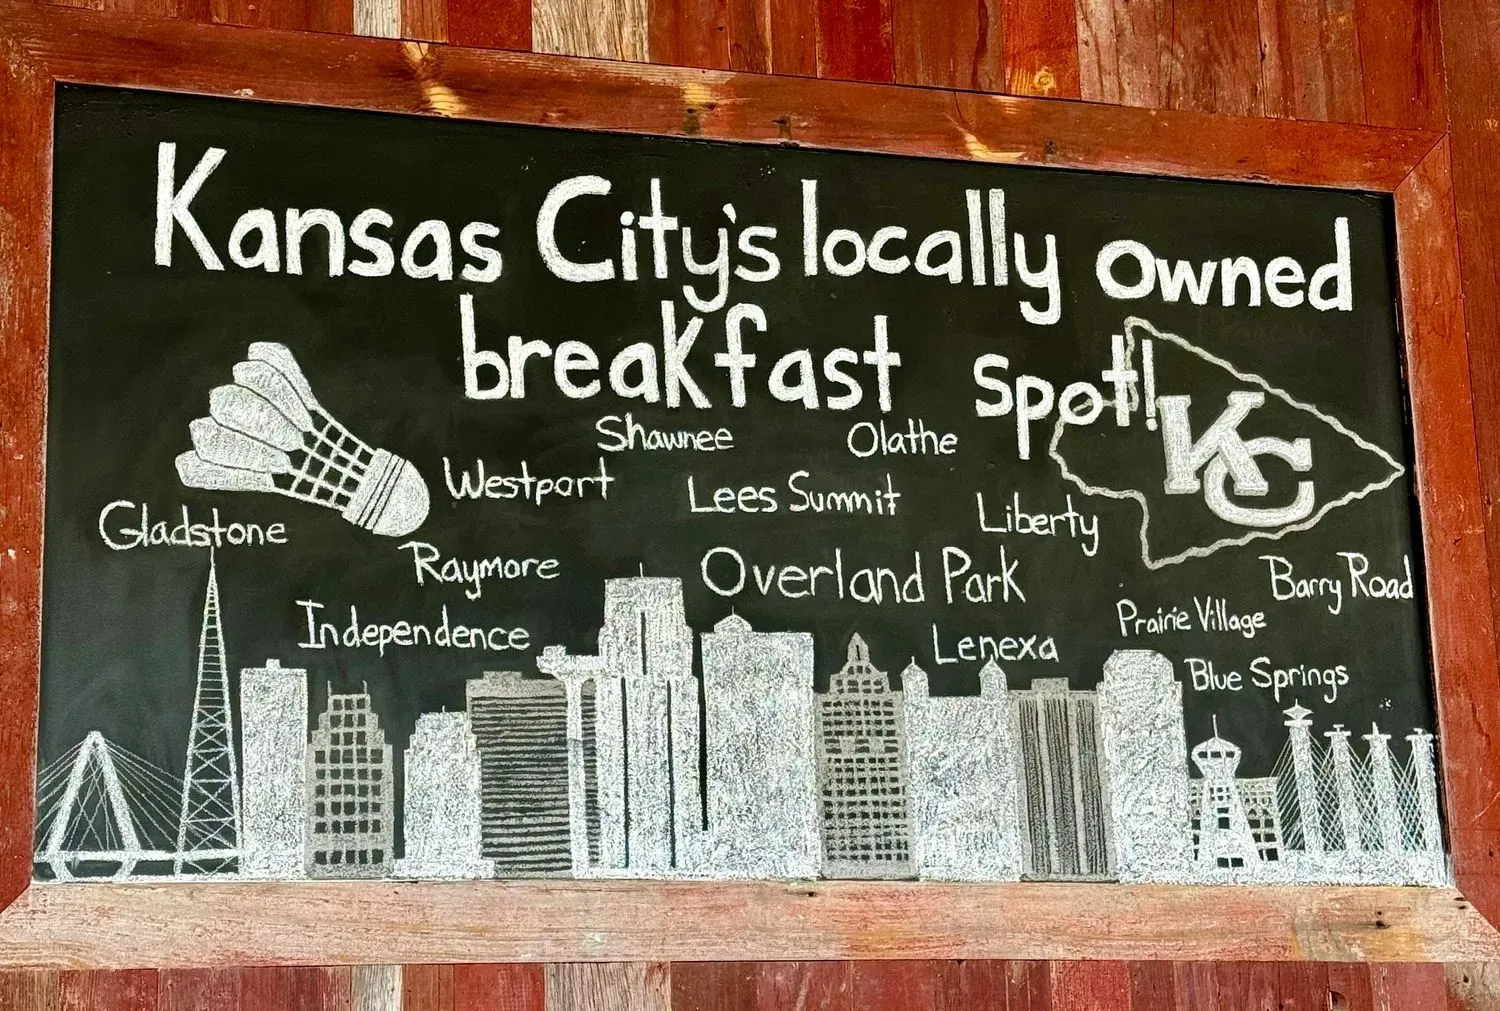 Kansas City's locally owned
breakfast spot!
Shawnee
Olathe
Westport
Lees Summit
Liberty
KC
Gladstone
Raymore
Overland Park
Barry Road
Independence
Lenexa
Prairie Village
Blue Springs